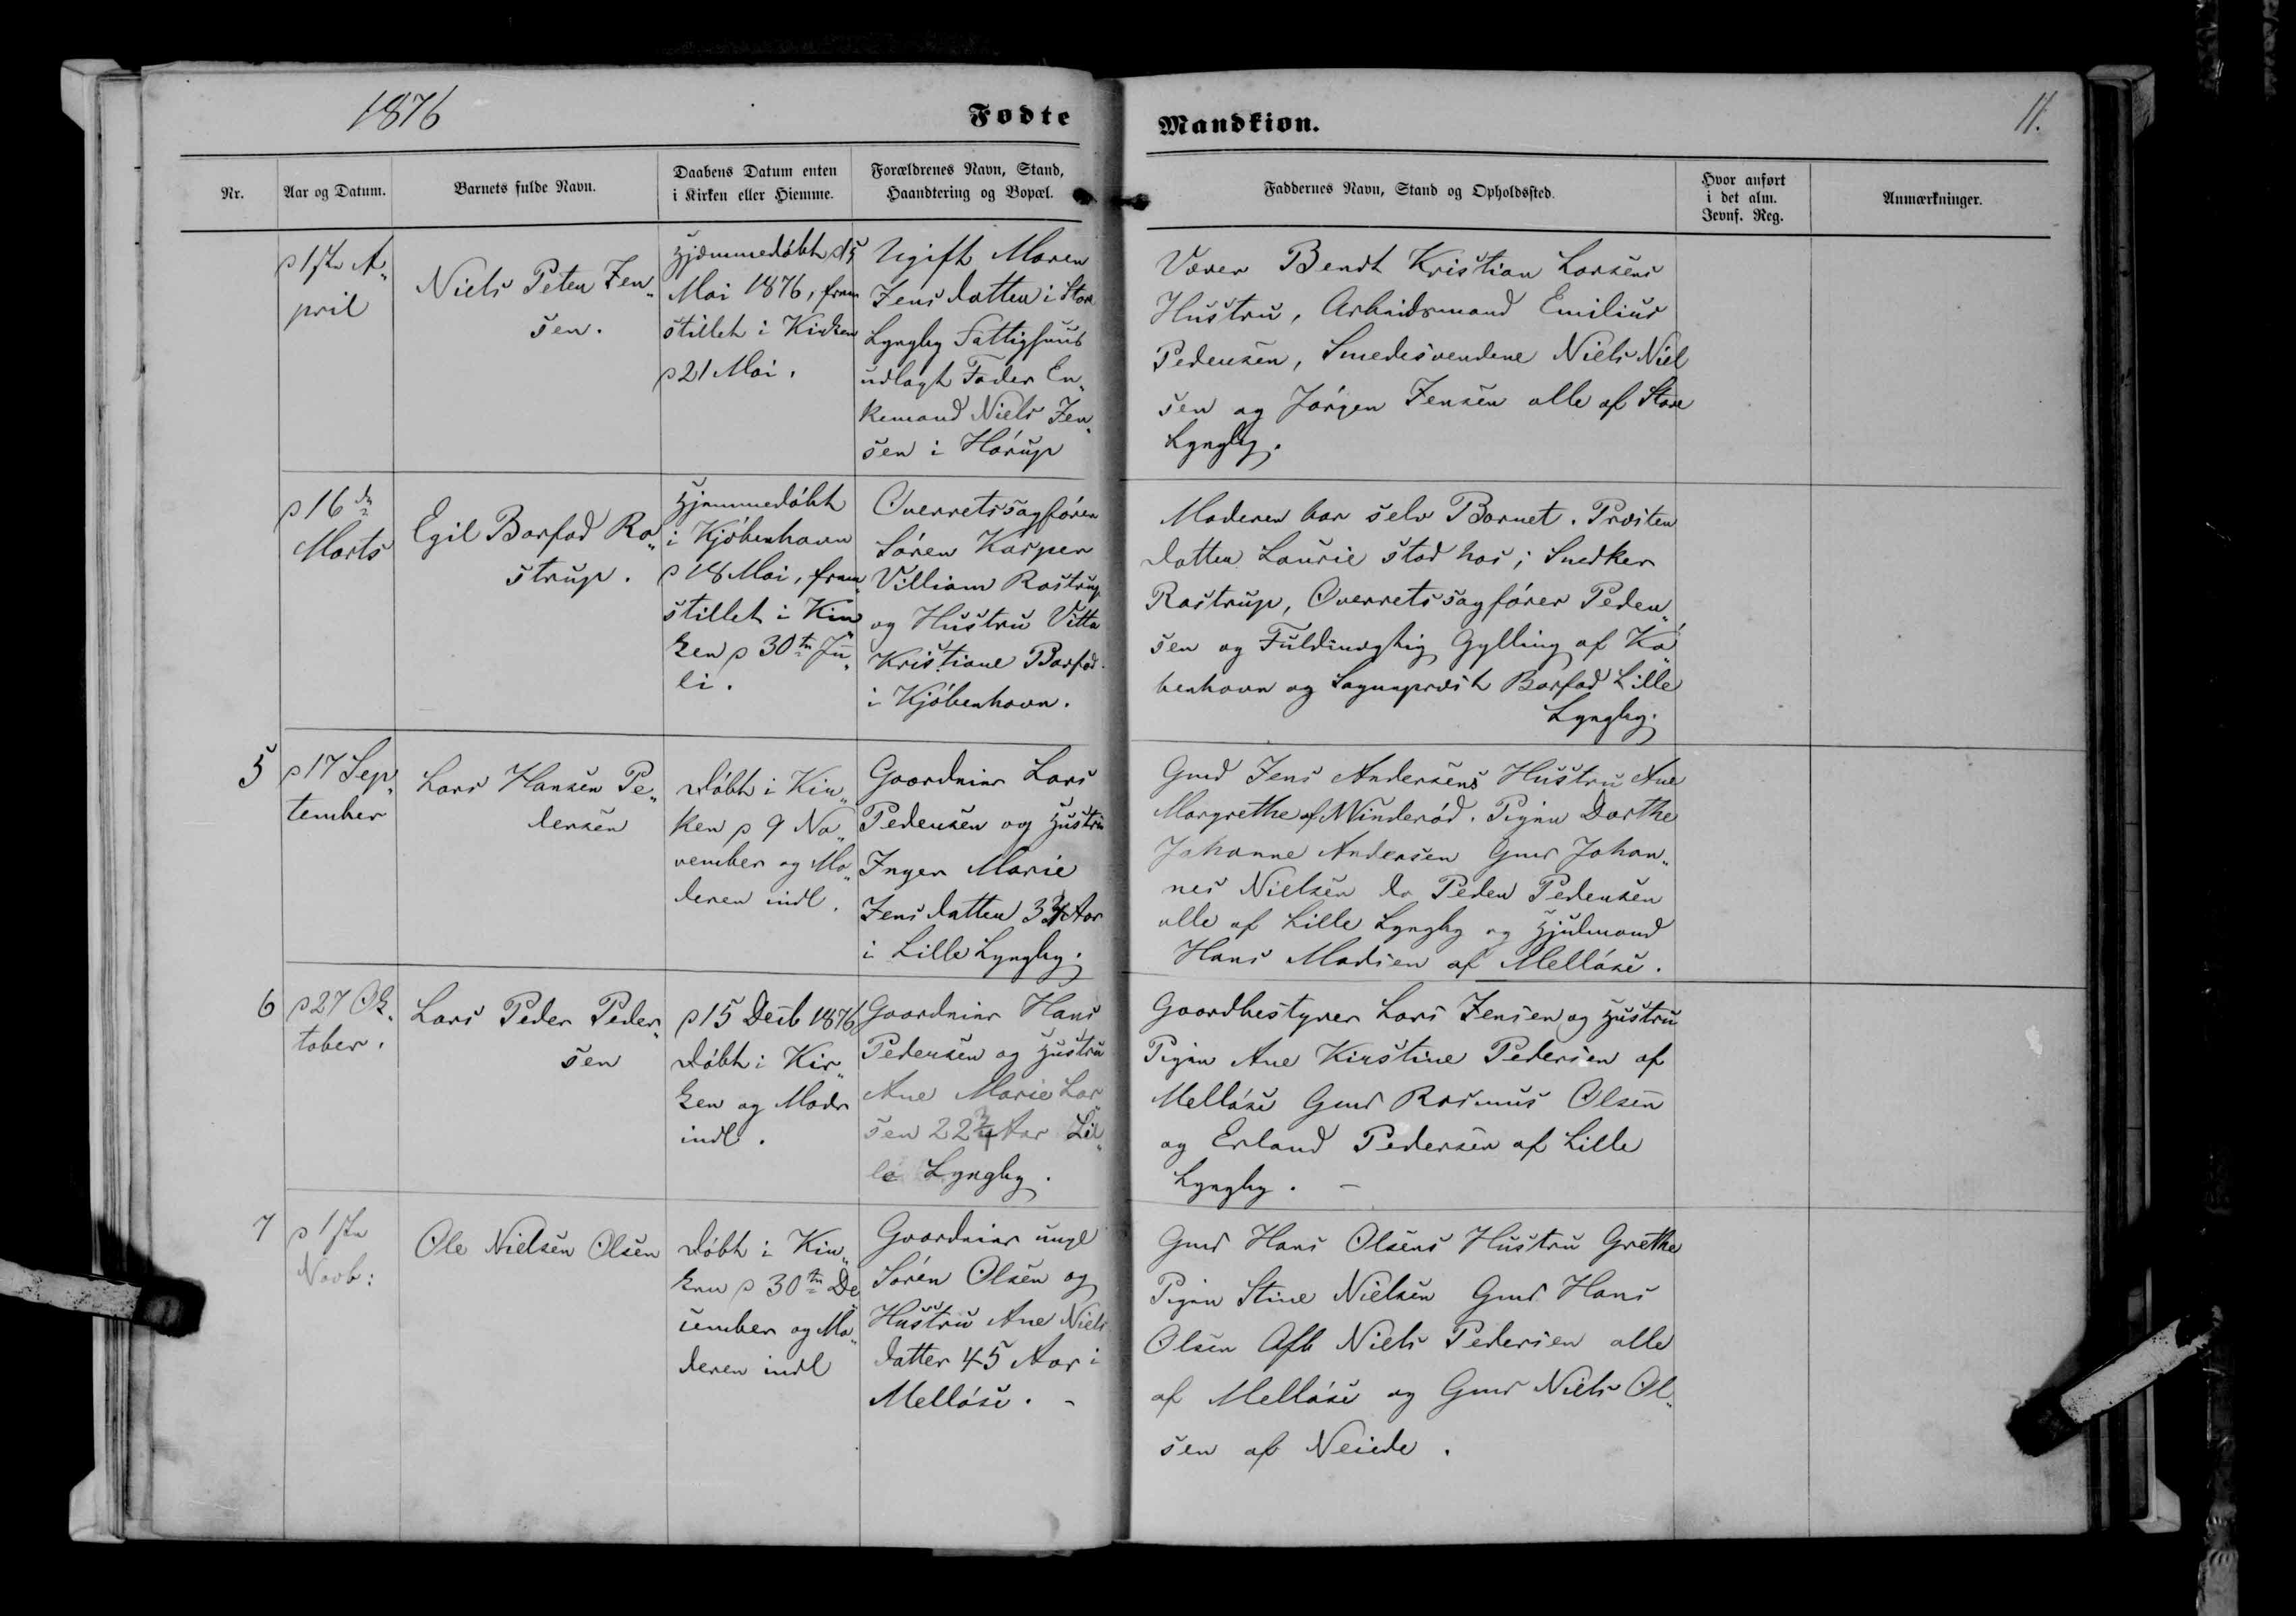 1876
Fødte
Mandkiøn.
11.
Nr.
Aar og Datum.
Barnets fulde Navn.
Daabens Datum enten
i Kirken eller Hiemme.
Forældrenes Navn, Stand,
Haandtering og Bopæl.
Faddernes Navn, Stand og Opholdssted.
Hvor anført
i det alm.
Jevnf. Reg.
Anmærkninger.
d 1ste A„
pril
Niels Peter Jen„
sen.
Hjemmedøbt d 5
Mai 1876, frem
stillet i Kirken
d 21 Mai.
Ugift Maren
Jensdatter i Store
Lyngby Fattighuus
udlagt Fader En„
kemand Niels Jen„
sen i Hørup
Væver Bendt Kristian Larsens
Hustru, Arbeidsmand Emilius
Pedersen, Smedesvendene Niels Niel
sen og Jørgen Jensen alle af Store
Lyngby.
d 16de
Marts
Egil Barfod Ro„
strup.
Hjemmedøbt
i Kjøbenhavn
d 18 Mai, frem„
stillet i Kir
ken d 30te Ju„
li.
Overretssagfører
Søren Kasper
Villiam Rostrup
og Hustru Vitta
Kristiane Barfod
i Kjøbenhavn.
Moderen bar selv Barnet. Præsten
datter Laurie stod hos; Snedker
Rostrup, Overretssagfører Peder„
sen og Fuldmægtig Gylling af Kø„
benhavn og Sognepræst Barfod Lille
Lyngby.
5
d 17 Sep„
tember
Lars Hansen Pe„
dersen
Døbt i Kir„
ken d 9 No„
vember og Mo„
deren indl.
Gaardeier Lars
Pedersen og Hustru
Inger Marie
Jensdatter Aar
i Lille Lyngby.
Gmd Jens Andersens Hustru Ane
Margrethe af Vinderød. Pigen Dorthe
Johanne Andersen Gmd Johan„
nes Nielsen do Peder Pedersen
alle af Lille Lyngby og Hjulmand
Hans Madsen af Melløse.
6
d 27 Ok„
tober.
Lars Peder Peder„
sen
d 15 Decb 1876
Døbt i Kir„
ken og Modr
indl.
Gaardeier Hans
Pedersen og Hustru
Ane Marie Lar„
sen 22¾ Aar Lil„
le Lyngby.
Gaardbestyrer Lars Jensen og Hustru
Pigen Ane Kirstine Pedersen af
Melløse Gmd Rasmus Olsen
og Erland Pedersen af Lille
Lyngby. –
7
d 1ste
Novb:
Ole Nielsen Olsen
Døbt i Kir„
ken d 30te De
cember og Mo„
deren indl
Gaardeier unge
Søren Olsen og
Hustru Ane Niels
datter 45 Aar i
Melløse. –
Gmd Hans Olsens Hustru Grethe
Pigen Stine Nielsen Gmd Hans
Olsen Aftb Niels Pedersen alle
af Melløse og Gmd Niels Ol„
sen af Neiede.